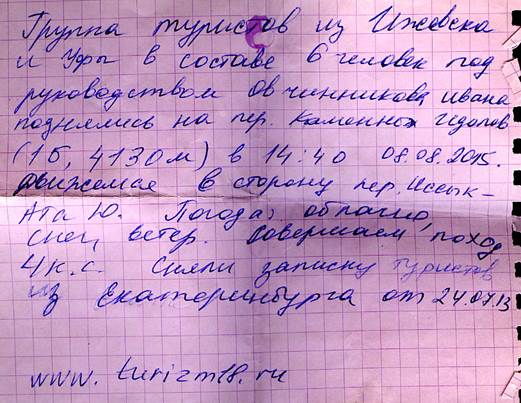 Группа туристов из Ижевска
и Уфы в составе 6 человек под
руководством Овчинникова Ивана
поднялись на пер. Каменных идолов
(1Б, 4130м) в 14:40 08.08.2015.
движемся в сторону пер. Иссык-
Ата Ю. Погода: облачно,
снег, ветер. Совершаем поход
4 к.с. Сняли записку туристов
из Екатеринбурга от 24.07.13
www.turizm18.ru